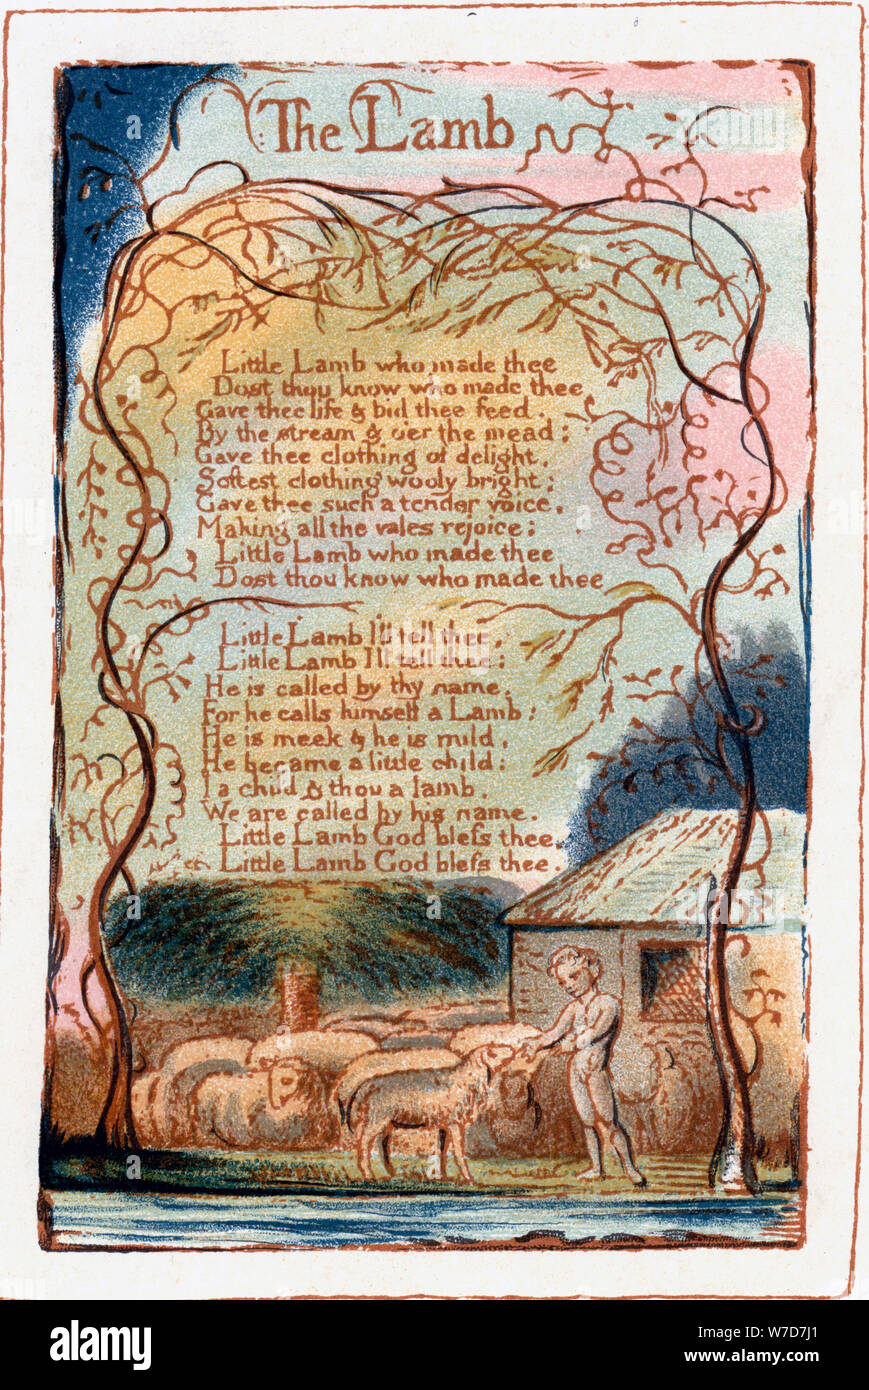 The Lamb
Little Lamb who made thee
Dost thou know who made thee
Gave thee life & bid thee feed.
By the stream & o'er the mead;
Gave thee clothing of delight,
Softest clothing wooly bright;
Gave thee such a tender voice,
Making all the vales rejoice:
Little Lamb who made thee
Dost thou know who made thee
Little Lamb I'll tell thee,
Little Lamb I'll tell thee;
He is called by thy name,
For he calls himself a Lamb:
He is meek & he is mild,
He became a little child:
I a child & thou a lamb,
We are called by his name.
Little Lamb God bleſs thee,
Little Lamb God bleſs thee.
alamy
alamy
Image ID: W7D7J1
www.alamy.com